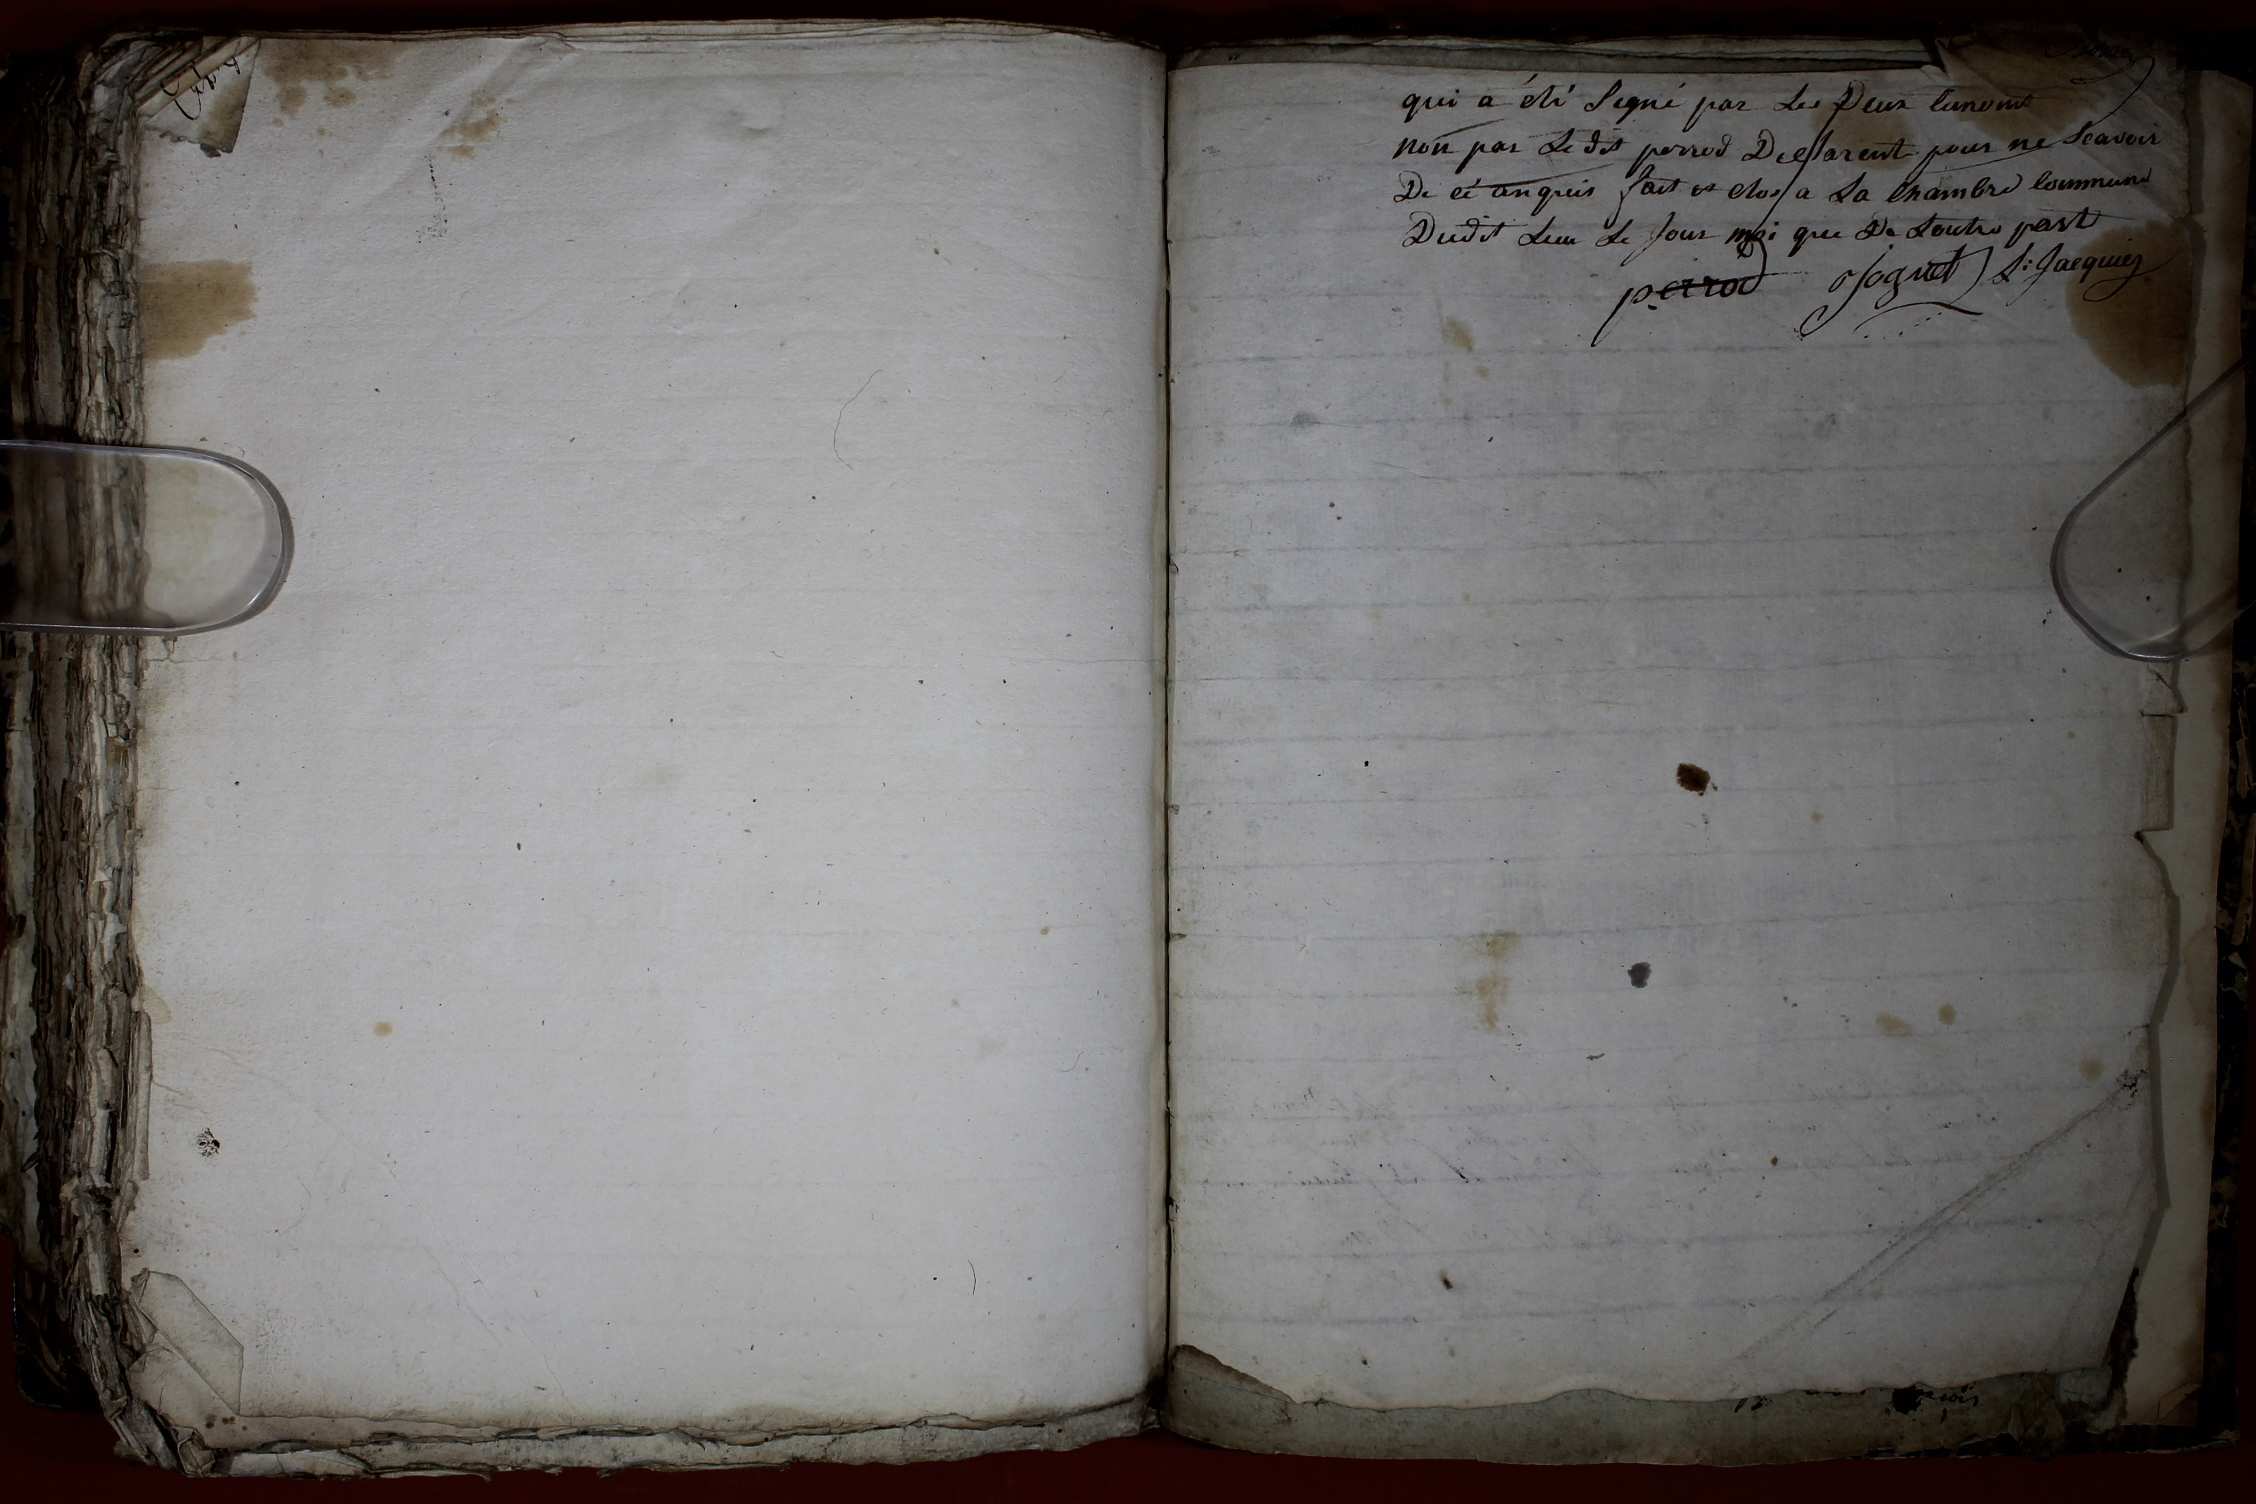 qui a été Signé par Les Deux
non par Le dit perrod Declarent pour ne Scavoir
De ce anquis fait et clos a La Chambre Commune
Dudit Lieu Le Jour moi que De Lautre part
perrod Jognet Jacquier